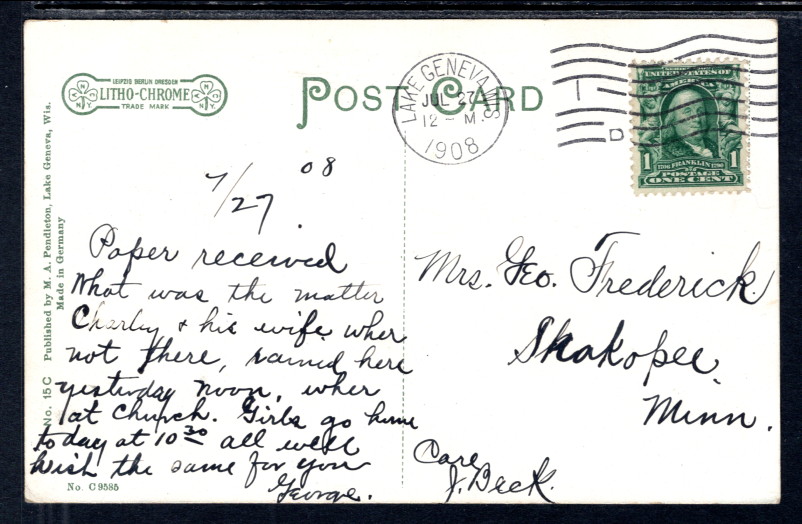 LEIPZIG BERLIN DRESDEN
LITHO-CHROME
TRADE MARK
POST CARD
LAKE GENEVA, WIS.
JUL 27
12 - M
1908
D
UNITED STATES OF
AMERICA
1 FRANKLIN 1
POSTAGE
ONE CENT
No. 15 C Published by M. A. Pendleton, Lake Geneva, Wis.
Made in Germany
7/27 08
Paper received
What was the matter
Charley & his wife wher
not there, rained here
yesterday noon, wher
at Church. Girls go home
today at 10 30 all well
Wish the same for you
George.
No. C 9585
Mrs. Geo. Frederick.
Shakopee,
Minn.
Care
J. Beck.